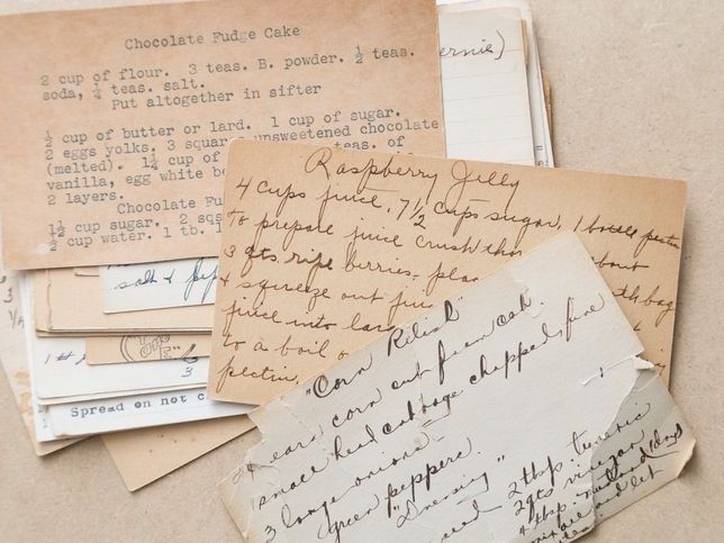 Chocolate Fudge Cake
2 cup of flour. 3 teas. B. powder. ½ teas.
soda, ¼ teas. salt.
Put altogether in sifter
½ cup of butter or lard. 1 cup of sugar.
2 eggs yolks. 3 squar unsweetened chocolate
(melted). 1½ cup of teas. of
vanilla, egg white be
2 layers.
Chocolate Fu
1½ cup sugar. 2 sqs
½ cup water. 1 tb. 1
ernie)
Raspberry Jelly
4 cups juice, 7½ cups sugar, 1 bottle pectin
To prepare juice crush tho about
3 qts ripe berries. plac
& squeeze out jui th bag
juice into lar
to a boil
pectin,
salt & pep
3
Spread on not c
"Corn Relish"
ears corn cut from cob.
small head cabbage chopped fine
3 large onions
green peppers.
"Dressing"
2 tbsp. tumeric
2 qts vinegar
4 tbsp. mustard (dry)
mix all and let